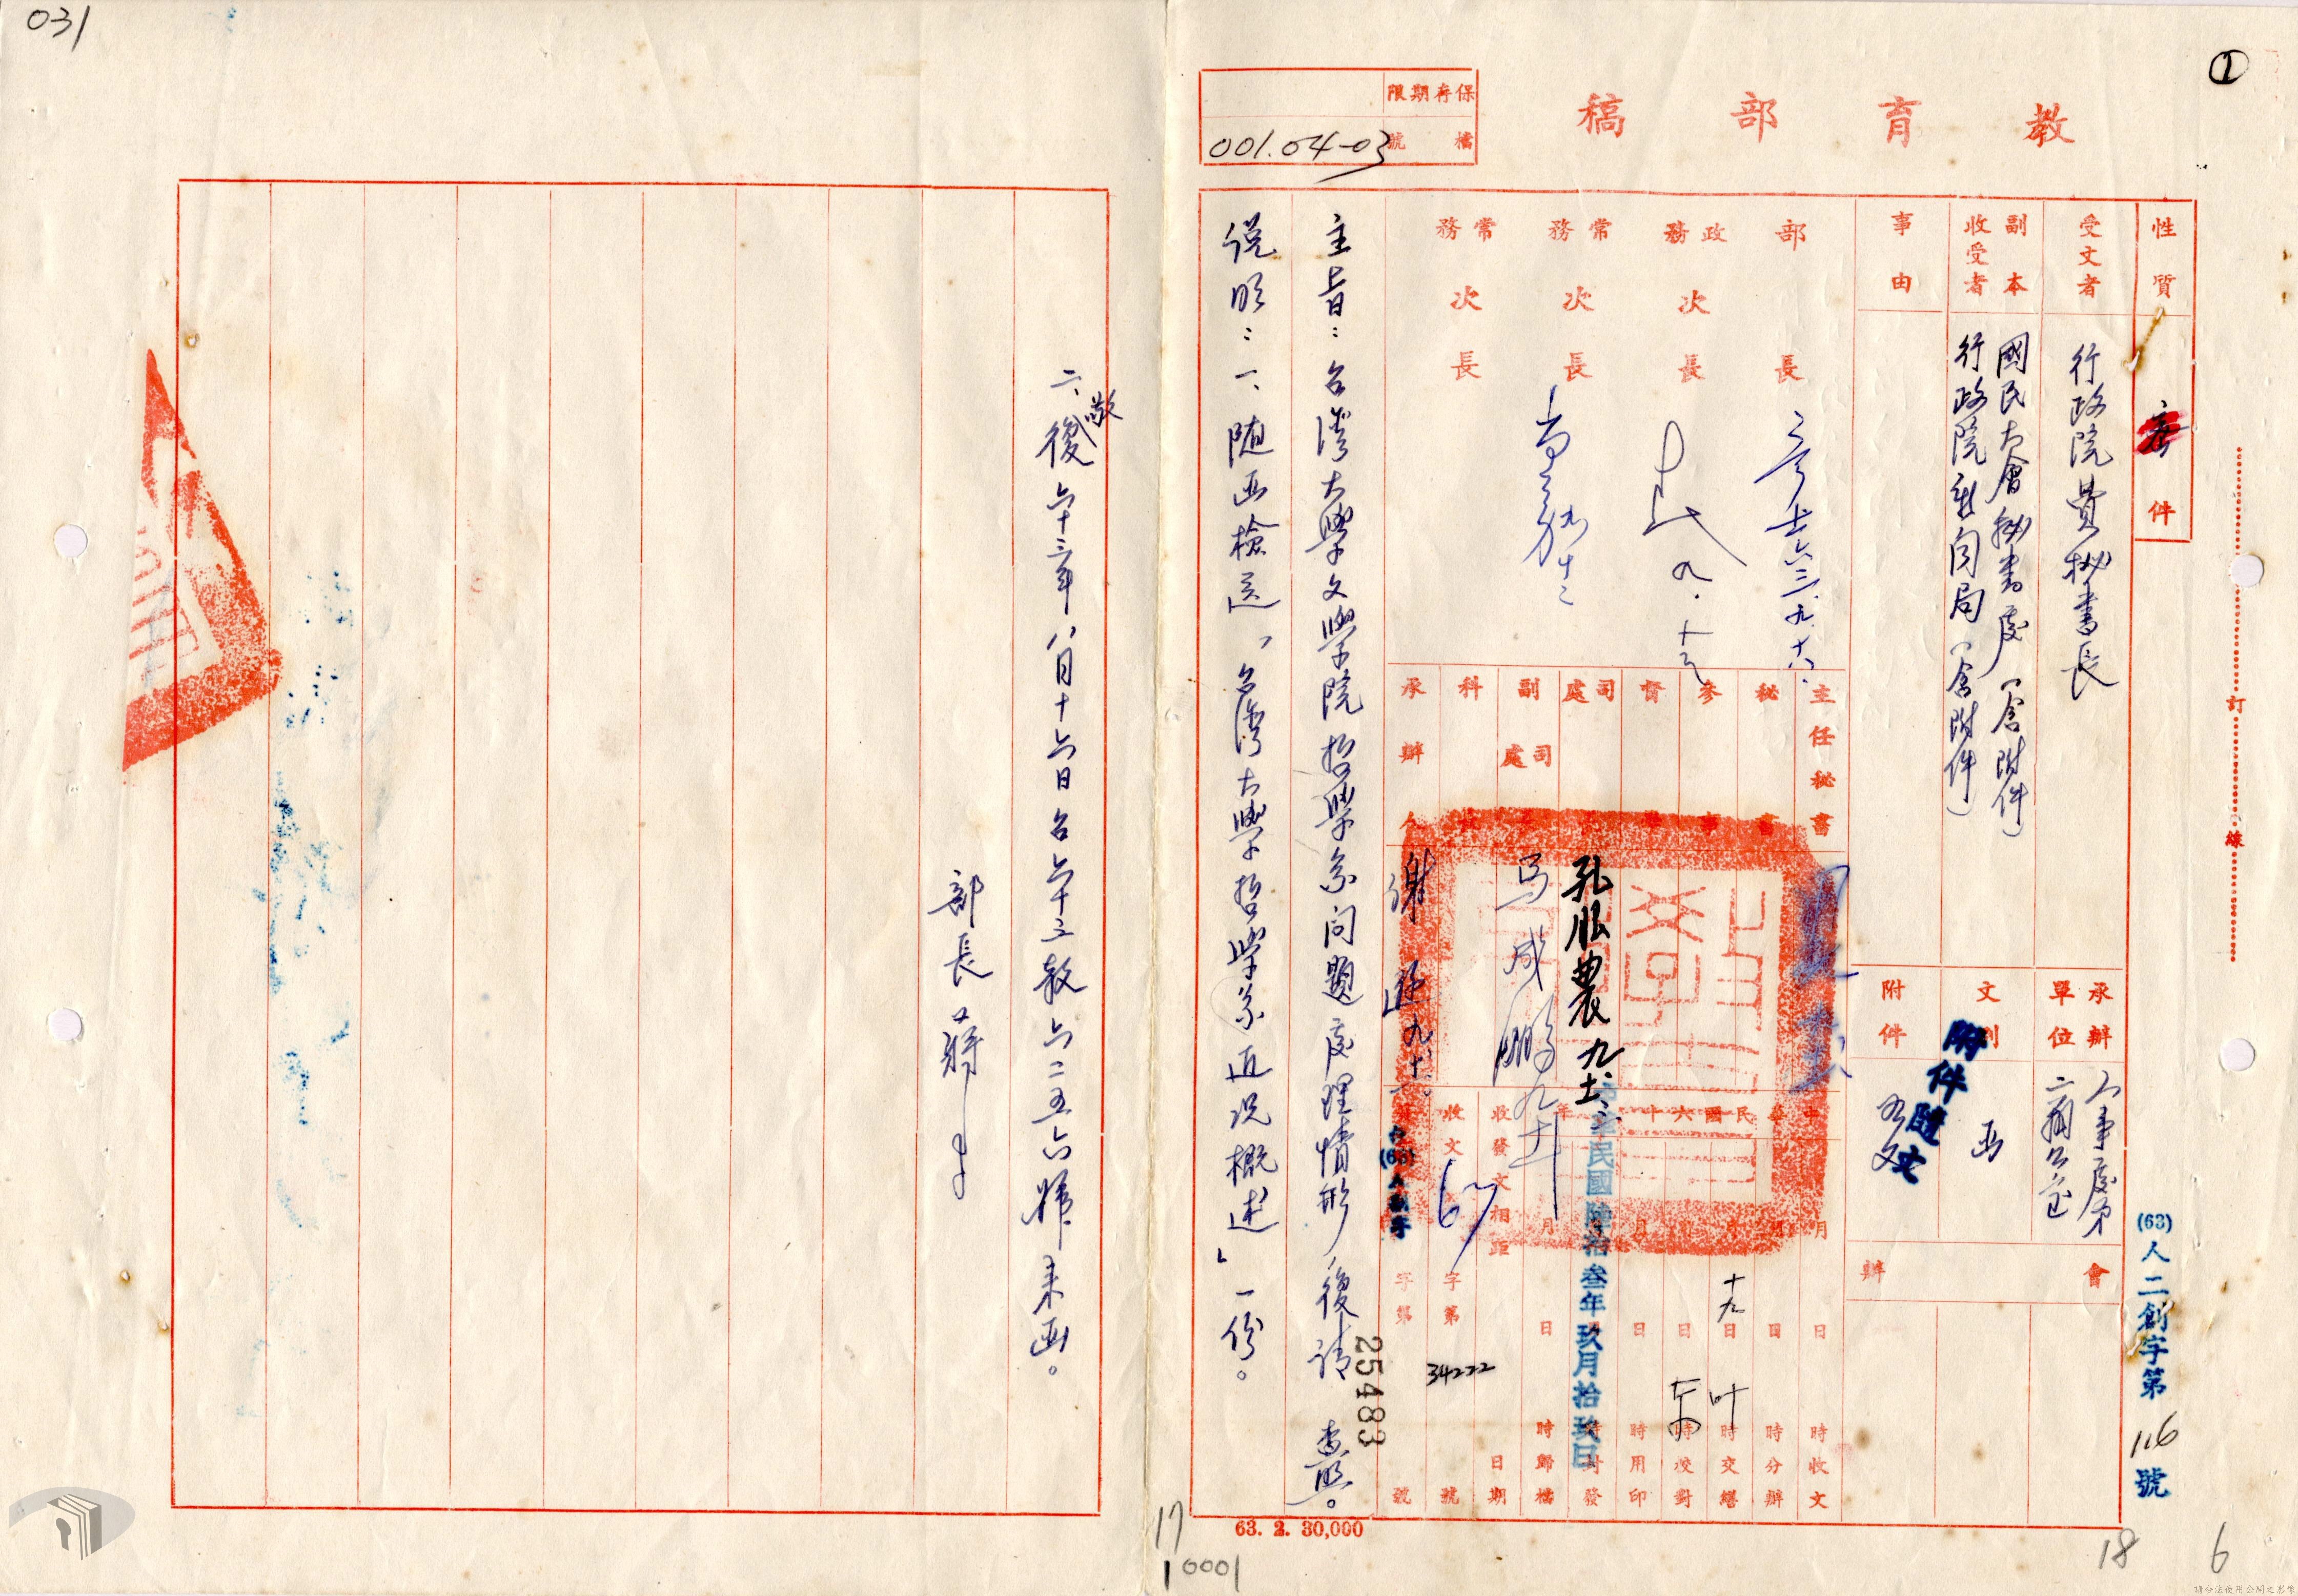 031
①
教育部稿
保存期限
檔號
001.04-03
性質
密件
受文者
行政院費秘書長
副本收受者
國民大會秘書處（含附件）
行政院新聞局（含附件）
事由
承辦單位
人事處第二科
文別
函
附件
附件隨文
如文
會辦
(63)人二創字第116號
訂
線
部長
六三、九、十六
政務次長
常務次長
常務次長
主任秘書
秘書
參事
督學
司處
副司處
科長
承辦人
孔服農
馬成鵬
謝
中華民國六十 年
月 日 時收文
月 日 時分辦
月 日 時交繕
月 日 時校對
月 日 時用印
月 日 時封發
月 日 時歸檔
收發文相距 日期
收文 字第 號
發文 字第 號
十九
中華民國陸拾叁年玖月拾玖日
34222
25483
主旨：台灣大學文學院哲學系問題處理情形，復請 查照。
說明：一、隨函檢送「台灣大學哲學系近況概述」一份。
二、敬復六十三年八月十六日台六十三教六二五六號來函。
部長 蔣
63. 2. 30,000
17
10001
18
6
請合法使用公開之影像